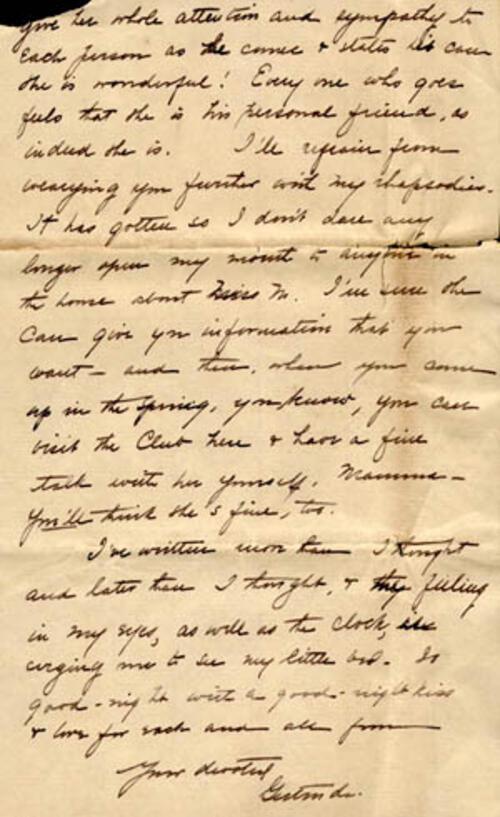 give her whole attention and sympathy to
each person as he comes & states his case
she is wonderful! Every one who goes
feels that she is his personal friend, as
indeed she is. I'll refrain from
wearying you further with my rhapsodies.
It has gotten so I don't dare any
longer open my mouth to anyone in
the house about Miss M. I'm sure she
can give you information that you
want – and then, when you come
up in the Spring, you know, you can
visit the Club here & have a fine
talk with her yourself. Mamma –
You'll think she's fine, too.
I've written more than I thought
and later than I thought, & the feeling
in my eyes, as well as the clock, are
urging me to see my little bed. So
good-night with a good-night kiss
& love for each and all from
Your devoted
Gertrude.